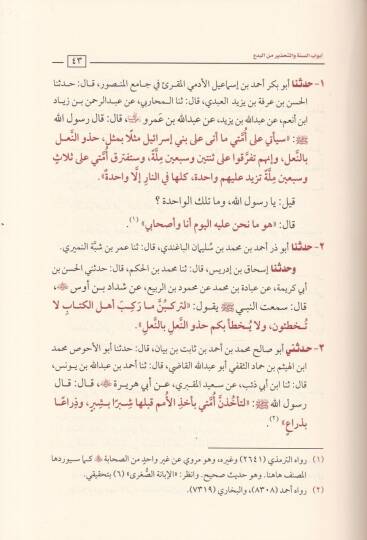 أبواب السنة والتحذير من البدع
٤٣
١- حدثنا أبو بكر أحمد بن إسماعيل الأدمي المقرئ في جامع المنصور، قال: حدثنا
الحسن بن عرفة بن يزيد العبدي، قال: ثنا المحاربي، عن عبدالرحمن بن زياد
ابن أنعم، عن عبدالله بن يزيد، عن عبدالله بن عَمرو ﷺ، قال: قال رسول الله
ﷺ: «سيأتي على أُمَّتي ما أتى على بني إسرائيل مثلًا بمثلٍ، حذو النَّعل
بالنَّعل، وإنهم تفرَّقوا على ثنتين وسبعين مِلَّةً، وستفترق أُمَّتي على ثلاثٍ
وسبعين مِلَّةً تزيد عليهم واحدة، كلها في النارِ إلَّا واحدةً».
قيل: يا رسول الله، وما تلك الواحدة ؟
قال: «هو ما نحن عليه اليوم أنا وأصحابي» (١).
٢- حدثنا أبو ذر أحمد بن محمد بن سُليمان الباغندي، قال: ثنا عمر بن شبَّة النميري.
وحدثنا إسحاق بن إدريس، قال: ثنا محمد بن الحكم، قال: حدثني الحسن بن
أبي كريمة، عن عبادة بن محمد عن محمود بن الربيع، عن شداد بن أوس
قال: سمعت النبي ﷺ يقول: «لتركبُنَّ ما رَكِبَ أهل الكتاب لا
تُخطئون، ولا يُخطأ بكم حذو النَّعلِ بالنَّعلِ».
٣- حدثني أبو صالح محمد بن أحمد بن ثابت بن بيان، قال: حدثنا أبو الأحوص محمد
ابن الهيثم بن حماد الثقفي أبو عبدالله القاضي، قال: ثنا أحمد بن عبدالله بن يونس،
قال: ثنا ابن أبي ذئب، عن سعيد المقبري، عن أبي هريرة، قال: قال
رسول الله ﷺ: «لتأخذنَّ أُمَّتي بأخذِ الأُمم قبلها شِبرًا بشِبرٍ، وذِراعًا
بذراع» (٢).
(١) رواه الترمذي (٢٦٤١) وغيره، وهو مروي عن غير واحدٍ من الصحابة كما سيوردها
المصنف هاهنا. وهو حديث صحيح. وانظر: «الإبانة الصُّغرى» (٦) بتحقيقي.
(٢) رواه أحمد (٨٣٠٨)، والبخاري (٧٣١٩).